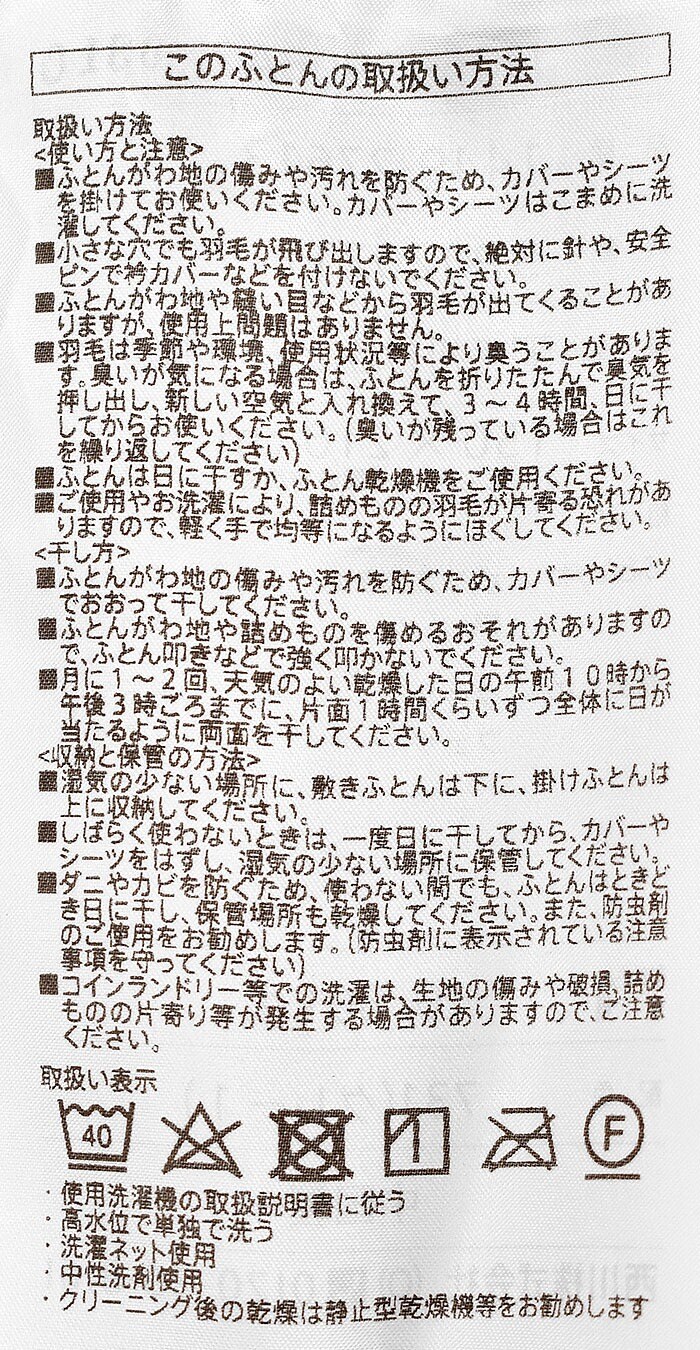 このふとんの取扱い方法
取扱い方法
<使い方と注意>
■ふとんがわ地の傷みや汚れを防ぐため、カバーやシーツ
を掛けてお使いください。カバーやシーツはこまめに洗
濯してください。
■小さな穴でも羽毛が飛び出しますので、絶対に針や、安全
ピンで衿カバーなどを付けないでください。
■ふとんがわ地や縫い目などから羽毛が出てくることがあ
りますが、使用上問題はありません。
■羽毛は季節や環境、使用状況等により臭うことがありま
す。臭いが気になる場合は、ふとんを折りたたんで臭気を
押し出し、新しい空気と入れ換えて、3～4時間、日に干
してからお使いください。(臭いが残っている場合はこれ
を繰り返してください)
■ふとんは日に干すか、ふとん乾燥機をご使用ください。
■ご使用やお洗濯により、詰めものの羽毛が片寄る恐れがあ
りますので、軽く手で均等になるようにほぐしてください。
<干し方>
■ふとんがわ地の傷みや汚れを防ぐため、カバーやシーツ
でおおって干してください。
■ふとんがわ地や詰めものを傷めるおそれがありますの
で、ふとん叩きなどで強く叩かないでください。
■月に1～2回、天気のよい乾燥した日の午前10時から
午後3時ごろまでに、片面1時間くらいずつ全体に日が
当たるように両面を干してください。
<収納と保管の方法>
■湿気の少ない場所に、敷きふとんは下に、掛けふとんは
上に収納してください。
■しばらく使わないときは、一度日に干してから、カバーや
シーツをはずし、湿気の少ない場所に保管してください。
■ダニやカビを防ぐため、使わない間でも、ふとんはときど
き日に干し、保管場所も乾燥してください。また、防虫剤
のご使用をお勧めします。(防虫剤に表示されている注意
事項を守ってください)
■コインランドリー等での洗濯は、生地の傷みや破損、詰め
ものの片寄り等が発生する場合がありますので、ご注意
ください。
取扱い表示
40 F
・使用洗濯機の取扱説明書に従う
・高水位で単独で洗う
・洗濯ネット使用
・中性洗剤使用
・クリーニング後の乾燥は静止型乾燥機等をお勧めします